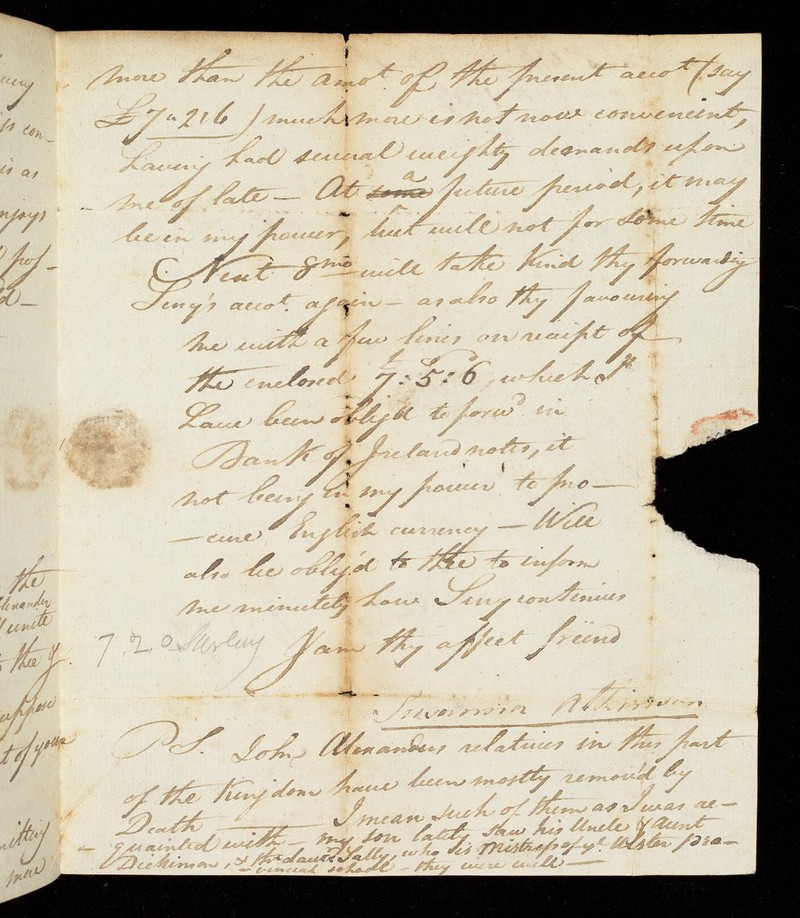 more than the amot. of the present accot. (say
£7"2"6) much more is not now convenient,
having had several weighty demands upon
me of late — At some a future period, it may
be in my power, but will not for some time
Next 8mo will take kind thy forwarding
Lucy's accot. again — as also thy favouring
me with a few lines on receipt of
the enclosed 7:5:6, which I
have been oblig'd to forwd. in
Bank of Ireland notes, it
not being in my power to pro-
-cure English currency — Will
also be oblig'd to thee to inform
me minutely how Lucy continues
7.2.0 Sterling I am thy affect friend
Susanna Atkinson
PS. John Alexanders relatives in this part
of the Kingdom have been mostly remov'd by
Death — I mean such of them as I was ac-
quainted with — my son lately saw his Uncle & Aunt
Dickinson, & their daur. Sally, who is Mistress of ye. Ulster pro-
-vincial school — they were well —
us con-
is as
enjoys
pos-
the
Alexander
unite
to thee
suppose
t of your
mitting
more